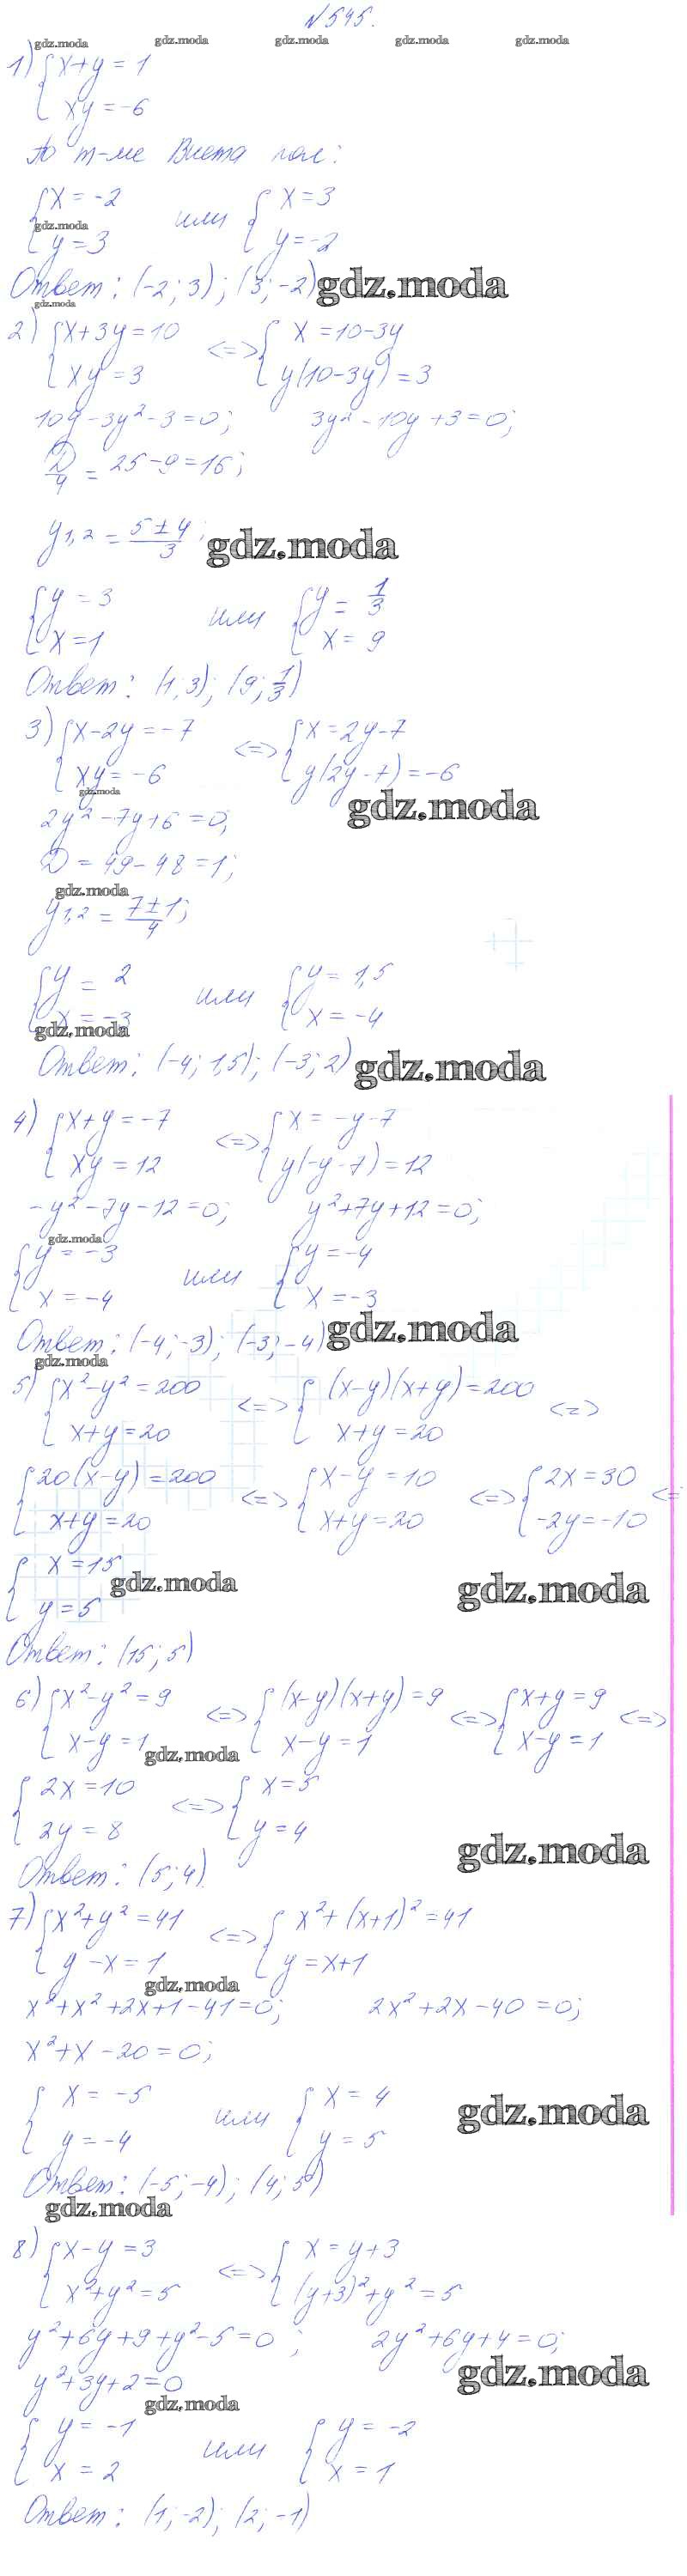 №545.
gdz.moda gdz.moda gdz.moda gdz.moda gdz.moda
1) {x+y=1
xy=-6
По т-ме Виета пол:
{x=-2 или {x=3
gdz.moda
y=3 y=-2
Ответ: (-2; 3); (3; -2) gdz.moda
gdz.moda
2) {x+3y=10 <=> {x=10-3y
xy=3 y(10-3y)=3
10y-3y²-3=0; 3y²-10y+3=0;
D/4=25-9=16;
y1,2=(5±4)/3; gdz.moda
{y=3 или {y=1/3
x=1 x=9
Ответ: (1; 3); (9; 1/3)
3) {x-2y=-7 <=> {x=2y-7
xy=-6 y(2y-7)=-6
gdz.moda gdz.moda
2y²-7y+6=0;
D=49-48=1;
gdz.moda
y1,2=(7±1)/4;
{y=2 или {y=1,5
x=-3 x=-4
gdz.moda
Ответ: (-4; 1,5); (-3; 2) gdz.moda
4) {x+y=-7 <=> {x=-y-7
xy=12 y(-y-7)=12
-y²-7y-12=0; y²+7y+12=0;
gdz.moda
{y=-3 или {y=-4
x=-4 x=-3
Ответ: (-4; -3); (-3; -4) gdz.moda
gdz.moda
5) {x²-y²=200 <=> {(x-y)(x+y)=200 <=>
x+y=20 x+y=20
{20(x-y)=200 <=> {x-y=10 <=> {2x=30 <=>
x+y=20 x+y=20 -2y=-10
{x=15
gdz.moda gdz.moda
y=5
Ответ: (15; 5)
6) {x²-y²=9 <=> {(x-y)(x+y)=9 <=> {x+y=9 <=>
x-y=1 x-y=1 x-y=1
gdz.moda
{2x=10 <=> {x=5
2y=8 y=4
gdz.moda
Ответ: (5; 4)
7) {x²+y²=41 <=> {x²+(x+1)²=41
y-x=1 y=x+1
gdz.moda
x²+x²+2x+1-41=0; 2x²+2x-40=0;
x²+x-20=0;
{x=-5 или {x=4
gdz.moda
y=-4 y=5
Ответ: (-5; -4); (4; 5)
gdz.moda
8) {x-y=3 <=> {x=y+3
x²+y²=5 (y+3)²+y²=5
y²+6y+9+y²-5=0; 2y²+6y+4=0;
gdz.moda
y²+3y+2=0
gdz.moda
{y=-1 или {y=-2
x=2 x=1
Ответ: (1; -2); (2; -1)